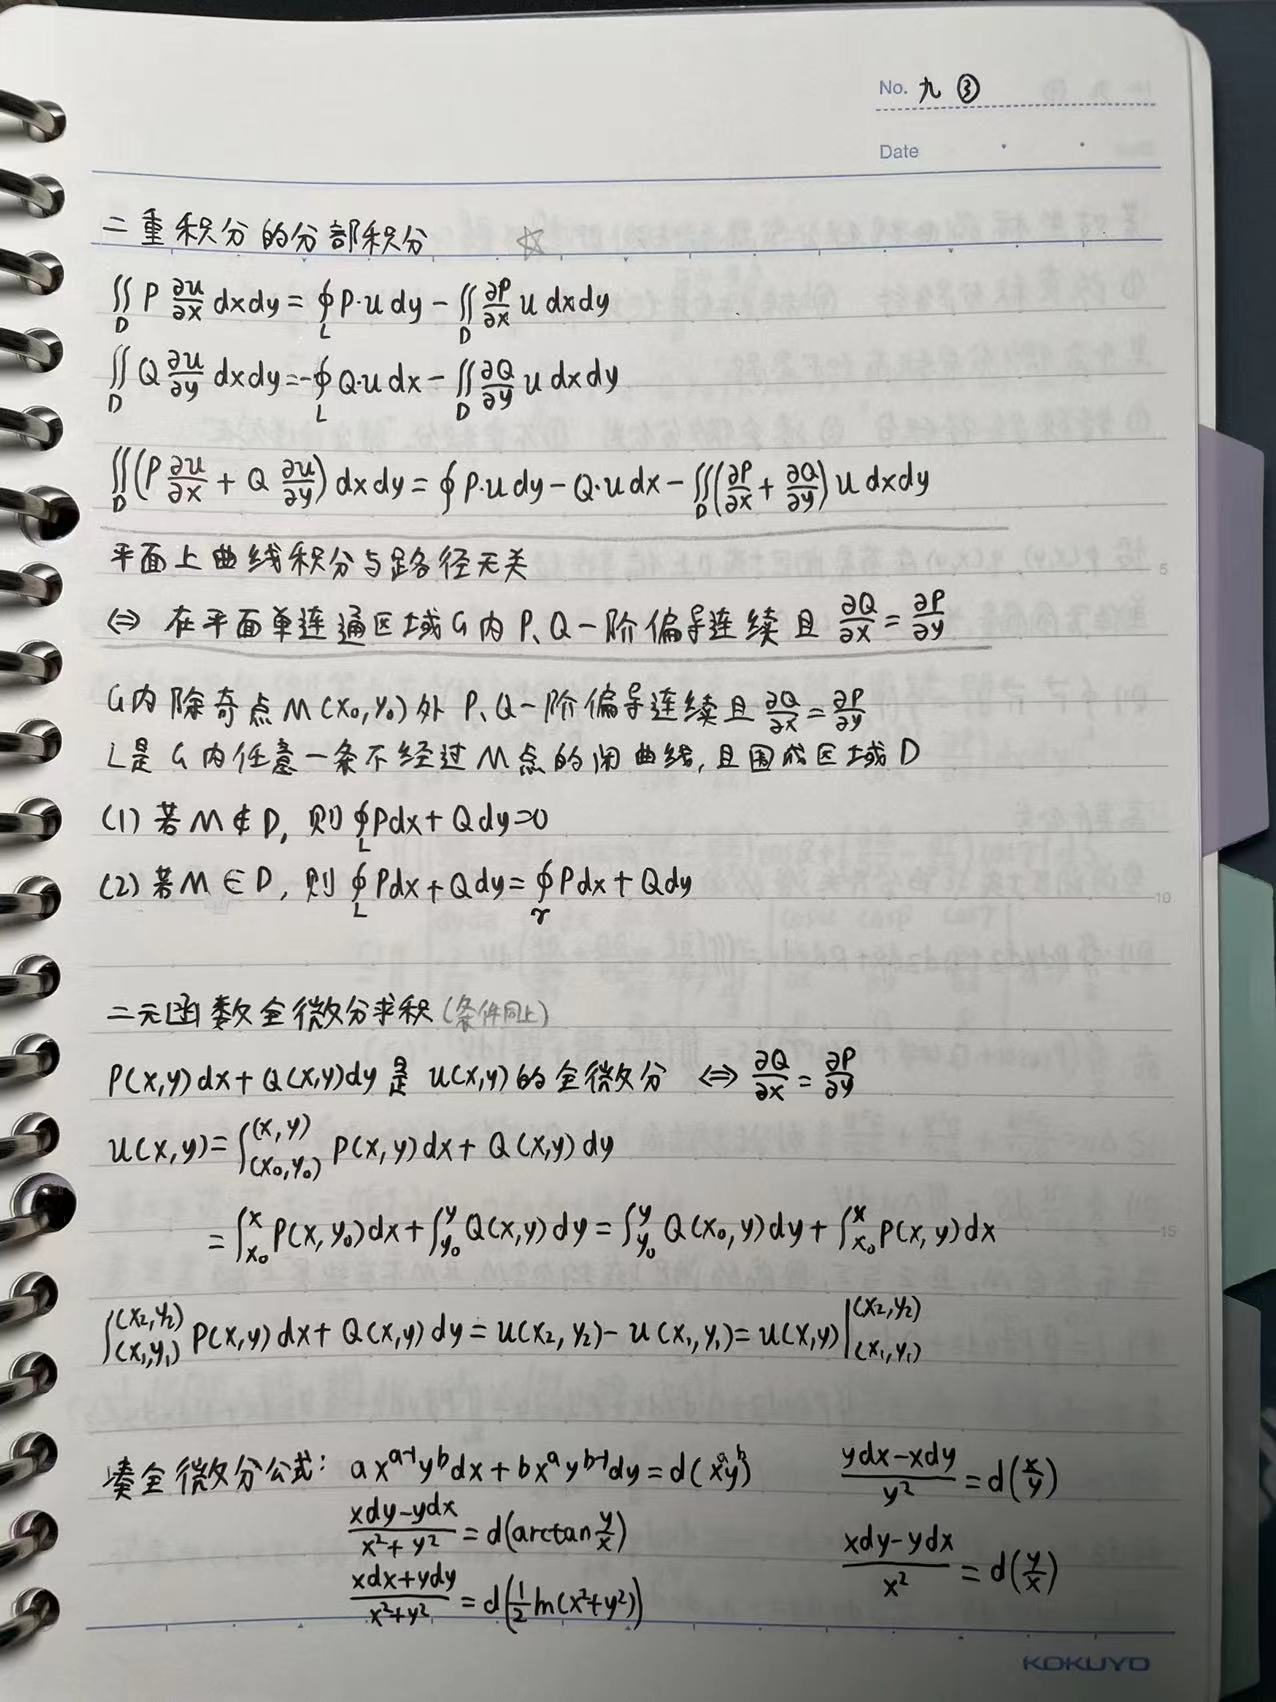 No. 九 ③
Date
二重积分的分部积分 ☆
∬_D P ∂u/∂x dxdy = ∮_L P·u dy − ∬_D ∂P/∂x u dxdy
∬_D Q ∂u/∂y dxdy = −∮_L Q·u dx − ∬_D ∂Q/∂y u dxdy
∬_D (P ∂u/∂x + Q ∂u/∂y) dxdy = ∮ P·u dy − Q·u dx − ∬_D (∂P/∂x + ∂Q/∂y) u dxdy
平面上曲线积分与路径无关
5
⇔ 在平面单连通区域G内 P、Q一阶偏导连续且 ∂Q/∂x = ∂P/∂y
G内除奇点M(x₀,y₀)外 P、Q一阶偏导连续且 ∂Q/∂x = ∂P/∂y
L是G内任意一条不经过M点的闭曲线,且围成区域D
(1) 若M∉D, 则∮_L Pdx + Qdy=0
(2) 若M∈D, 则∮_L Pdx + Qdy = ∮_r Pdx + Qdy
10
二元函数全微分求积(条件同上)
P(x,y)dx + Q(x,y)dy是 u(x,y)的全微分 ⇔ ∂Q/∂x = ∂P/∂y
u(x,y) = ∫_(x₀,y₀)^(x,y) P(x,y)dx + Q(x,y)dy
= ∫_x₀^x P(x,y₀)dx + ∫_y₀^y Q(x,y)dy = ∫_y₀^y Q(x₀,y)dy + ∫_x₀^x P(x,y)dx
15
∫_(x₁,y₁)^(x₂,y₂) P(x,y)dx + Q(x,y)dy = u(x₂,y₂) − u(x₁,y₁) = u(x,y)|_(x₁,y₁)^(x₂,y₂)
凑全微分公式: ax^(a-1)y^b dx + bx^a y^(b-1)dy = d(x^a y^b) (ydx−xdy)/y² = d(x/y)
(xdy−ydx)/(x²+y²) = d(arctan y/x) (xdy−ydx)/x² = d(y/x)
(xdx+ydy)/(x²+y²) = d(1/2 ln(x²+y²))
KOKUYO